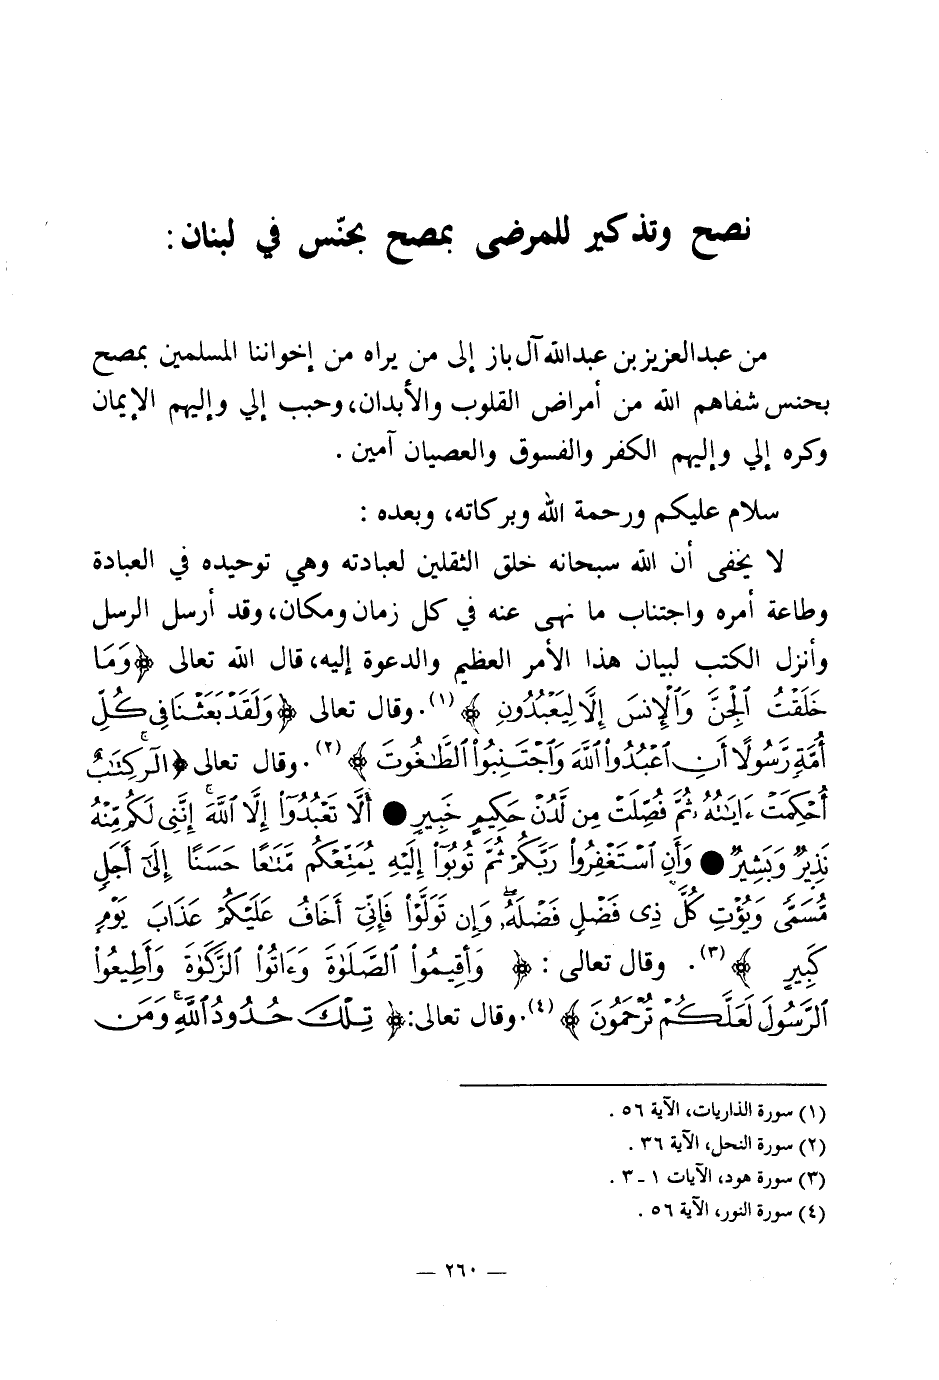 نصح وتذكير للمرضى بمصح بحنّس في لبنان:
من عبدالعزيز بن عبدالله آل باز إلى من يراه من إخواننا المسلمين بمصح
بحنس شفاهم الله من أمراض القلوب والأبدان، وحبب إلي وإليهم الإيمان
وكره إلي وإليهم الكفر والفسوق والعصيان آمين .
سلام عليكم ورحمة الله وبركاته، وبعده :
لا يخفى أن الله سبحانه خلق الثقلين لعبادته وهي توحيده في العبادة
وطاعة أمره واجتناب ما نهى عنه في كل زمان ومكان، وقد أرسل الرسل
وأنزل الكتب لبيان هذا الأمر العظيم والدعوة إليه، قال الله تعالى ﴿وَمَا
خَلَقْتُ ٱلْجِنَّ وَٱلْإِنسَ إِلَّا لِيَعْبُدُونِ ﴾(١). وقال تعالى ﴿وَلَقَدْ بَعَثْنَا فِي كُلِّ
أُمَّةٍ رَّسُولًا أَنِ ٱعْبُدُوا۟ ٱللَّهَ وَٱجْتَنِبُوا۟ ٱلطَّٰغُوتَ ﴾(٢). وقال تعالى ﴿الٓرۚ كِتَٰبٌ
أُحْكِمَتْ ءَايَٰتُهُۥ ثُمَّ فُصِّلَتْ مِن لَّدُنْ حَكِيمٍ خَبِيرٍ ● أَلَّا تَعْبُدُوٓا۟ إِلَّا ٱللَّهَۚ إِنَّنِى لَكُم مِّنْهُ
نَذِيرٌ وَبَشِيرٌ ● وَأَنِ ٱسْتَغْفِرُوا۟ رَبَّكُمْ ثُمَّ تُوبُوٓا۟ إِلَيْهِ يُمَتِّعْكُم مَّتَٰعًا حَسَنًا إِلَىٰٓ أَجَلٍ
مُّسَمًّى وَيُؤْتِ كُلَّ ذِى فَضْلٍ فَضْلَهُۥۖ وَإِن تَوَلَّوْا۟ فَإِنِّىٓ أَخَافُ عَلَيْكُمْ عَذَابَ يَوْمٍ
كَبِيرٍ ﴾(٣). وقال تعالى : ﴿ وَأَقِيمُوا۟ ٱلصَّلَوٰةَ وَءَاتُوا۟ ٱلزَّكَوٰةَ وَأَطِيعُوا۟
ٱلرَّسُولَ لَعَلَّكُمْ تُرْحَمُونَ ﴾(٤). وقال تعالى: ﴿ تِلْكَ حُدُودُ ٱللَّهِۚ وَمَن
(١) سورة الذاريات، الآية ٥٦ .
(٢) سورة النحل، الآية ٣٦ .
(٣) سورة هود، الآيات ١ - ٣ .
(٤) سورة النور، الآية ٥٦ .
— ٢٦٠ —